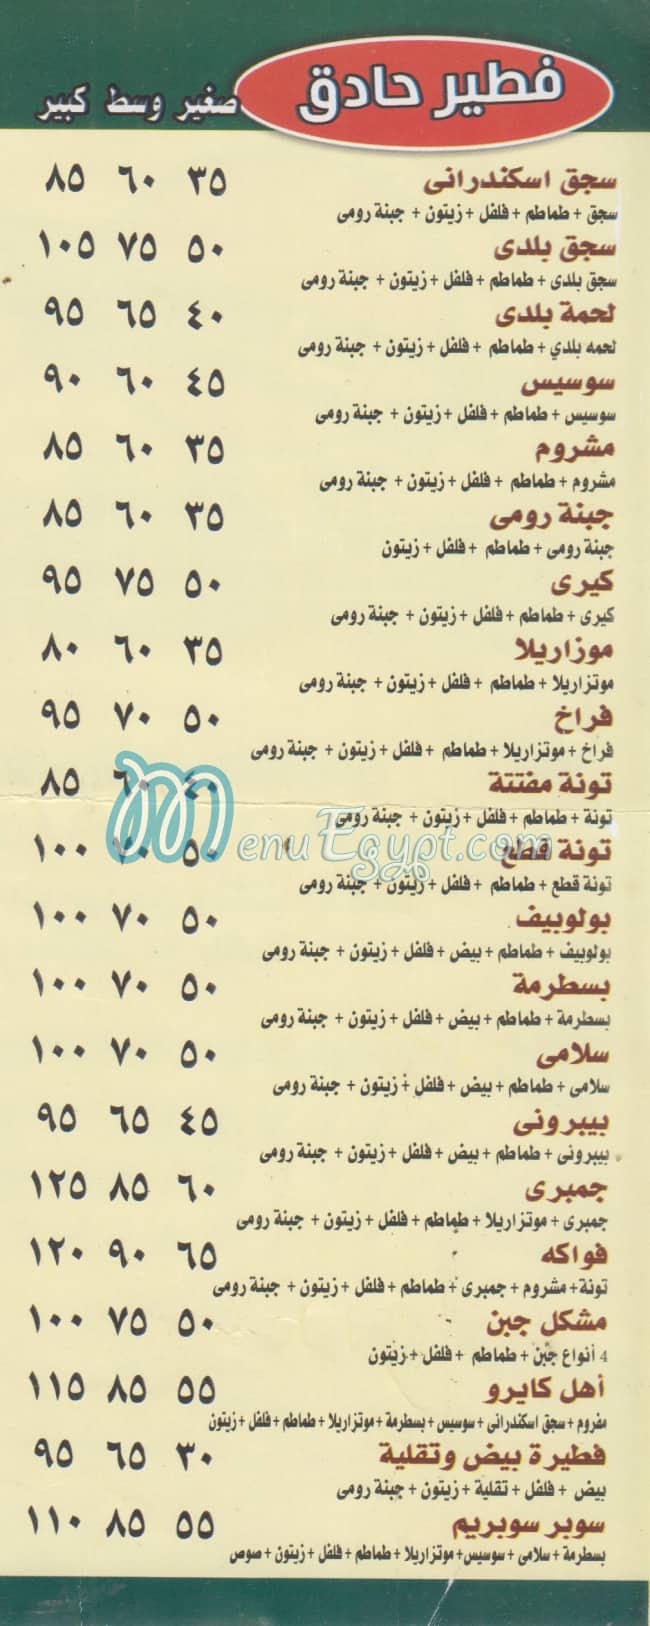 فطير حادق
صغير وسط كبير
سجق اسكندرانى ٣٥ ٦٠ ٨٥
سجق + طماطم + فلفل + زيتون + جبنة رومى
سجق بلدى ٥٠ ٧٥ ١٠٥
سجق بلدى + طماطم + فلفل + زيتون + جبنة رومى
لحمة بلدى ٤٠ ٦٥ ٩٥
لحمه بلدي + طماطم + فلفل + زيتون + جبنة رومى
سوسيس ٤٥ ٦٠ ٩٠
سوسيس + طماطم + فلفل + زيتون + جبنة رومى
مشروم ٣٥ ٦٠ ٨٥
مشروم + طماطم + فلفل + زيتون + جبنة رومى
جبنة رومى ٣٥ ٦٠ ٨٥
جبنة رومى + طماطم + فلفل + زيتون
كيرى ٥٠ ٧٥ ٩٥
كيرى + طماطم + فلفل + زيتون + جبنة رومى
موزاريلا ٣٥ ٦٠ ٨٠
موتزاريلا + طماطم + فلفل + زيتون + جبنة رومى
فراخ ٥٠ ٧٠ ٩٥
فراخ + موتزاريلا + طماطم + فلفل + زيتون + جبنة رومى
تونة مفتتة ٤٠ ٦٠ ٨٥
تونة + طماطم + فلفل + زيتون + جبنة رومى
MenuEgypt.com
تونة قطع ٥٠ ٧٠ ١٠٠
تونة قطع + طماطم + فلفل + زيتون + جبنة رومى
بولوبيف ٥٠ ٧٠ ١٠٠
بولوبيف + طماطم + بيض + فلفل + زيتون + جبنة رومى
بسطرمة ٥٠ ٧٠ ١٠٠
بسطرمة + طماطم + بيض + فلفل + زيتون + جبنة رومى
سلامى ٥٠ ٧٠ ١٠٠
سلامى + طماطم + بيض + فلفل + زيتون + جبنة رومى
بيبرونى ٤٥ ٦٥ ٩٥
بيبرونى + طماطم + بيض + فلفل + زيتون + جبنة رومى
جمبرى ٦٠ ٨٥ ١٢٥
جمبرى + موتزاريلا + طماطم + فلفل + زيتون + جبنة رومى
فواكه ٦٥ ٩٠ ١٢٠
تونة+ مشروم + جمبرى + طماطم + فلفل + زيتون + جبنة رومى
مشكل جبن ٥٠ ٧٥ ١٠٠
4 أنواع جبن + طماطم + فلفل + زيتون
أهل كايرو ٥٥ ٨٥ ١١٥
مفروم + سجق اسكندرانى + سوسيس + بسطرمة + موتزاريلا + طماطم + فلفل + زيتون
فطيرة بيض وتقلية ٣٠ ٦٥ ٩٥
بيض + فلفل + تقلية + زيتون + جبنة رومى
سوبر سوبريم ٥٥ ٨٥ ١١٠
بسطرمة + سلامى + سوسيس+ موتزاريلا + طماطم + فلفل + زيتون + صوص